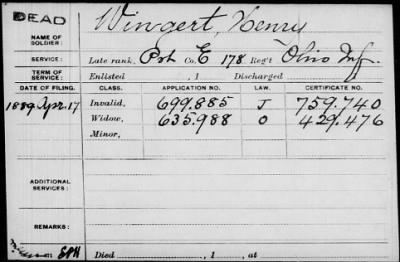 DEAD
NAME OF SOLDIER: Wingert, Henry
SERVICE: Late rank, Pvt Co. E 178 Reg't Ohio Inf.
TERM OF SERVICE: Enlisted , 1 Discharged
DATE OF FILING. CLASS. APPLICATION NO. LAW. CERTIFICATE NO.
1889 Apr. 17 Invalid, 699.885 J 759.740
Widow, 635.988 O 429.476
Minor,
ADDITIONAL SERVICES:
REMARKS:
Died , 1 , at